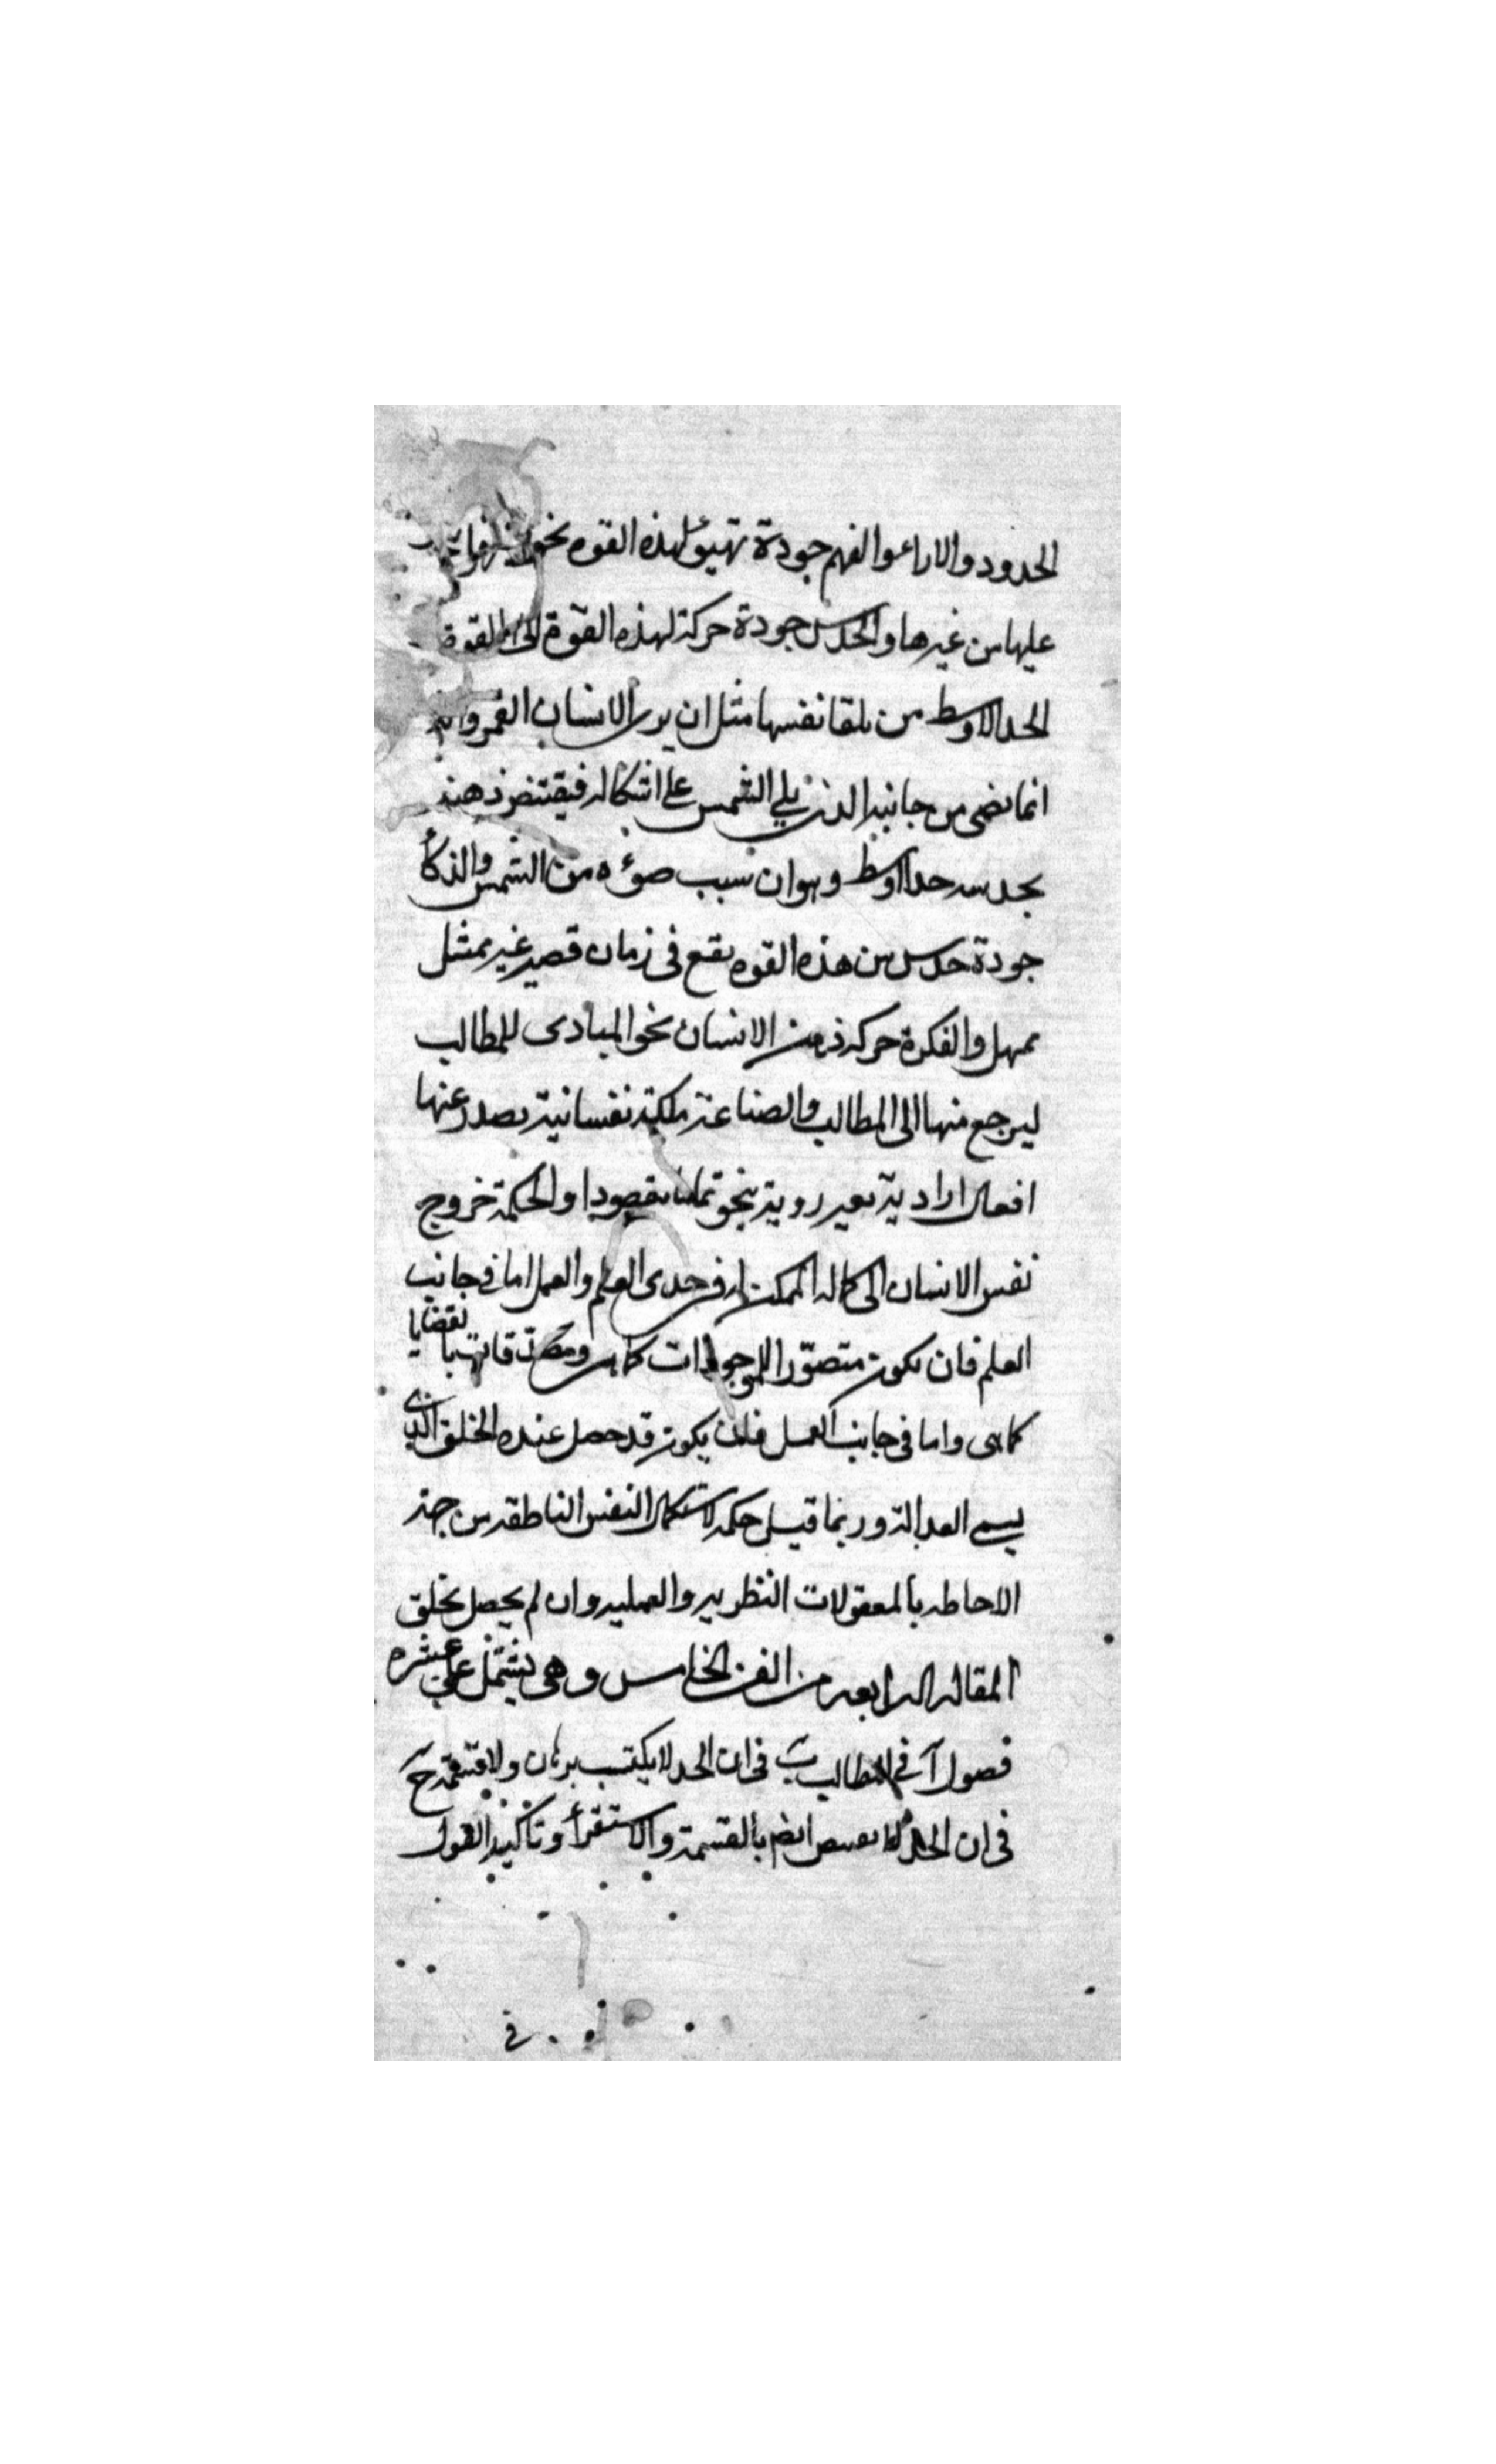 الحدود والاراء والفهم جودة تهيؤ لهذه القوه نحو
عليها من غيرها والحدس جودة حركة لهذه القوة الى القوة
الحد الاوسط من تلقا نفسها مثل ان يرى الانسان القمر وانه
انما يضى من جانبه الذى يلي الشمس على اشكاله فيقتنص ذهنه
بحدسه حدا اوسط وهو ان سبب ضوءه من الشمس والذكأ
جودة حدس من هذه القوه يقع فى زمان قصير غير ممثل
ممهل والفكرة حركة ذهن الانسان نحو المبادى للمطالب
ليرجع منها الى المطالب والصناعة ملكة نفسانية يصدر عنها
افعال ارادية بغير روية ينحو تماما مقصودا والحكمة خروج
نفس الانسان الى كماله الممكن له فى حدى العلم والعمل اما فى جانب
العلم فان يكون متصورا للموجودات كما هى ومصدقا بالقضايا
كما هى واما فى جانب العمل فان يكون قد حصل عنده الخلق الذى
يسمى العدالة وربما قيل حكمة لاستكمال النفس الناطقه من جهة
الاحاطه بالمعقولات النظريه والعمليه وان لم يحصل بخلق
المقاله الرابعه من الفن الخامس وهى يشتمل على عشره
فصول آ فى المطالب ب فى ان الحد لا يكتسب ببرهان ولا قسمة ج
فى ان الحد لا ايضا بالقسمة والاستقرأ وتأكيد القول
فى